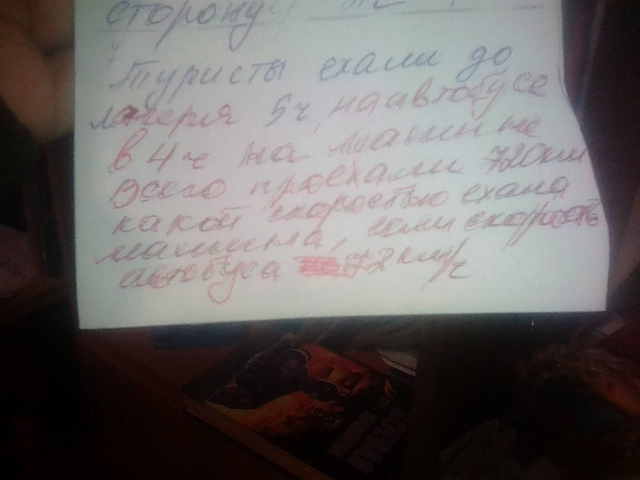 сторону
Туристы ехали до
лагеря 5ч, на автобусе
в 4ч на машине
Всего проехали 720км
какой скоростью ехала
машина, если скорость
автобуса 72км/ч